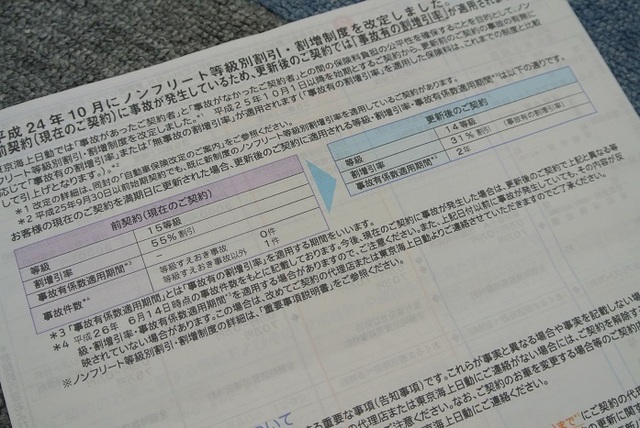 平成24年10月にノンフリート等級別割引・割増制度を改定しました。
前契約(現在のご契約)に事故が発生しているため、更新後のご契約では「事故有の割増引率」が適用され
東京海上日動では「事故があったご契約者」と「事故がなかったご契約者」との間の保険料負担の公平性を確保することを目的として、ノン
フリート等級別割引・割増制度を改定しました。*1 平成25年10月1日以降を始期とするご契約から、更新前のご契約の事故の有無に
応じて「事故有の割増引率」または「無事故の割増引率」が適用されます(「事故有の割増引率」を適用した保険料は、これまでの制度と比較
して引上げとなります。)。*2
*1 改定の詳細は、同封の「自動車保険改定のご案内」をご参照ください。
*2 平成25年9月30日以前始期契約でも、既に新制度のノンフリート等級別割増引率を適用しているご契約があります。
お客様の現在のご契約を満期日に更新された場合、更新後のご契約に適用される等級・割増引率・事故有係数適用期間*3は以下の通りです。
前契約(現在のご契約)
等級 15等級
割増引率 55%割引
事故有係数適用期間*3 -
事故件数*4 等級すえおき事故 0件
等級すえおき事故以外 1件
更新後のご契約
等級 14等級
割増引率 31%割引 (事故有の割増引率)
事故有係数適用期間*3 2年
*3 「事故有係数適用期間」とは「事故有の割増引率」を適用する期間をいいます。
*4 平成26年 6月14日時点の事故件数をもとに記載しております。今後、現在のご契約に事故が発生した場合は、更新後のご契約で上記と異なる等
級・割増引率・事故有係数適用期間*を適用する場合がありますので、ご注意ください。また、上記日付以前に事故が発生していても、その内容が反
映されていない場合があります。この場合は、改めてご契約の代理店または東京海上日動よりご連絡させていただきますのでご了承ください。
※ノンフリート等級別割引・割増制度の詳細は、「重要事項説明書」をご参照ください。
する重要な事項(告知事項)です。これらが事実と異なる場合や事実を記載しない場
の代理店または東京海上日動にご連絡がない場合には、ご契約を解除する
ご注意ください。なお、ご契約のお車を変更する場合等のご契約
東京海上日動にご連絡ください。
いて
まで